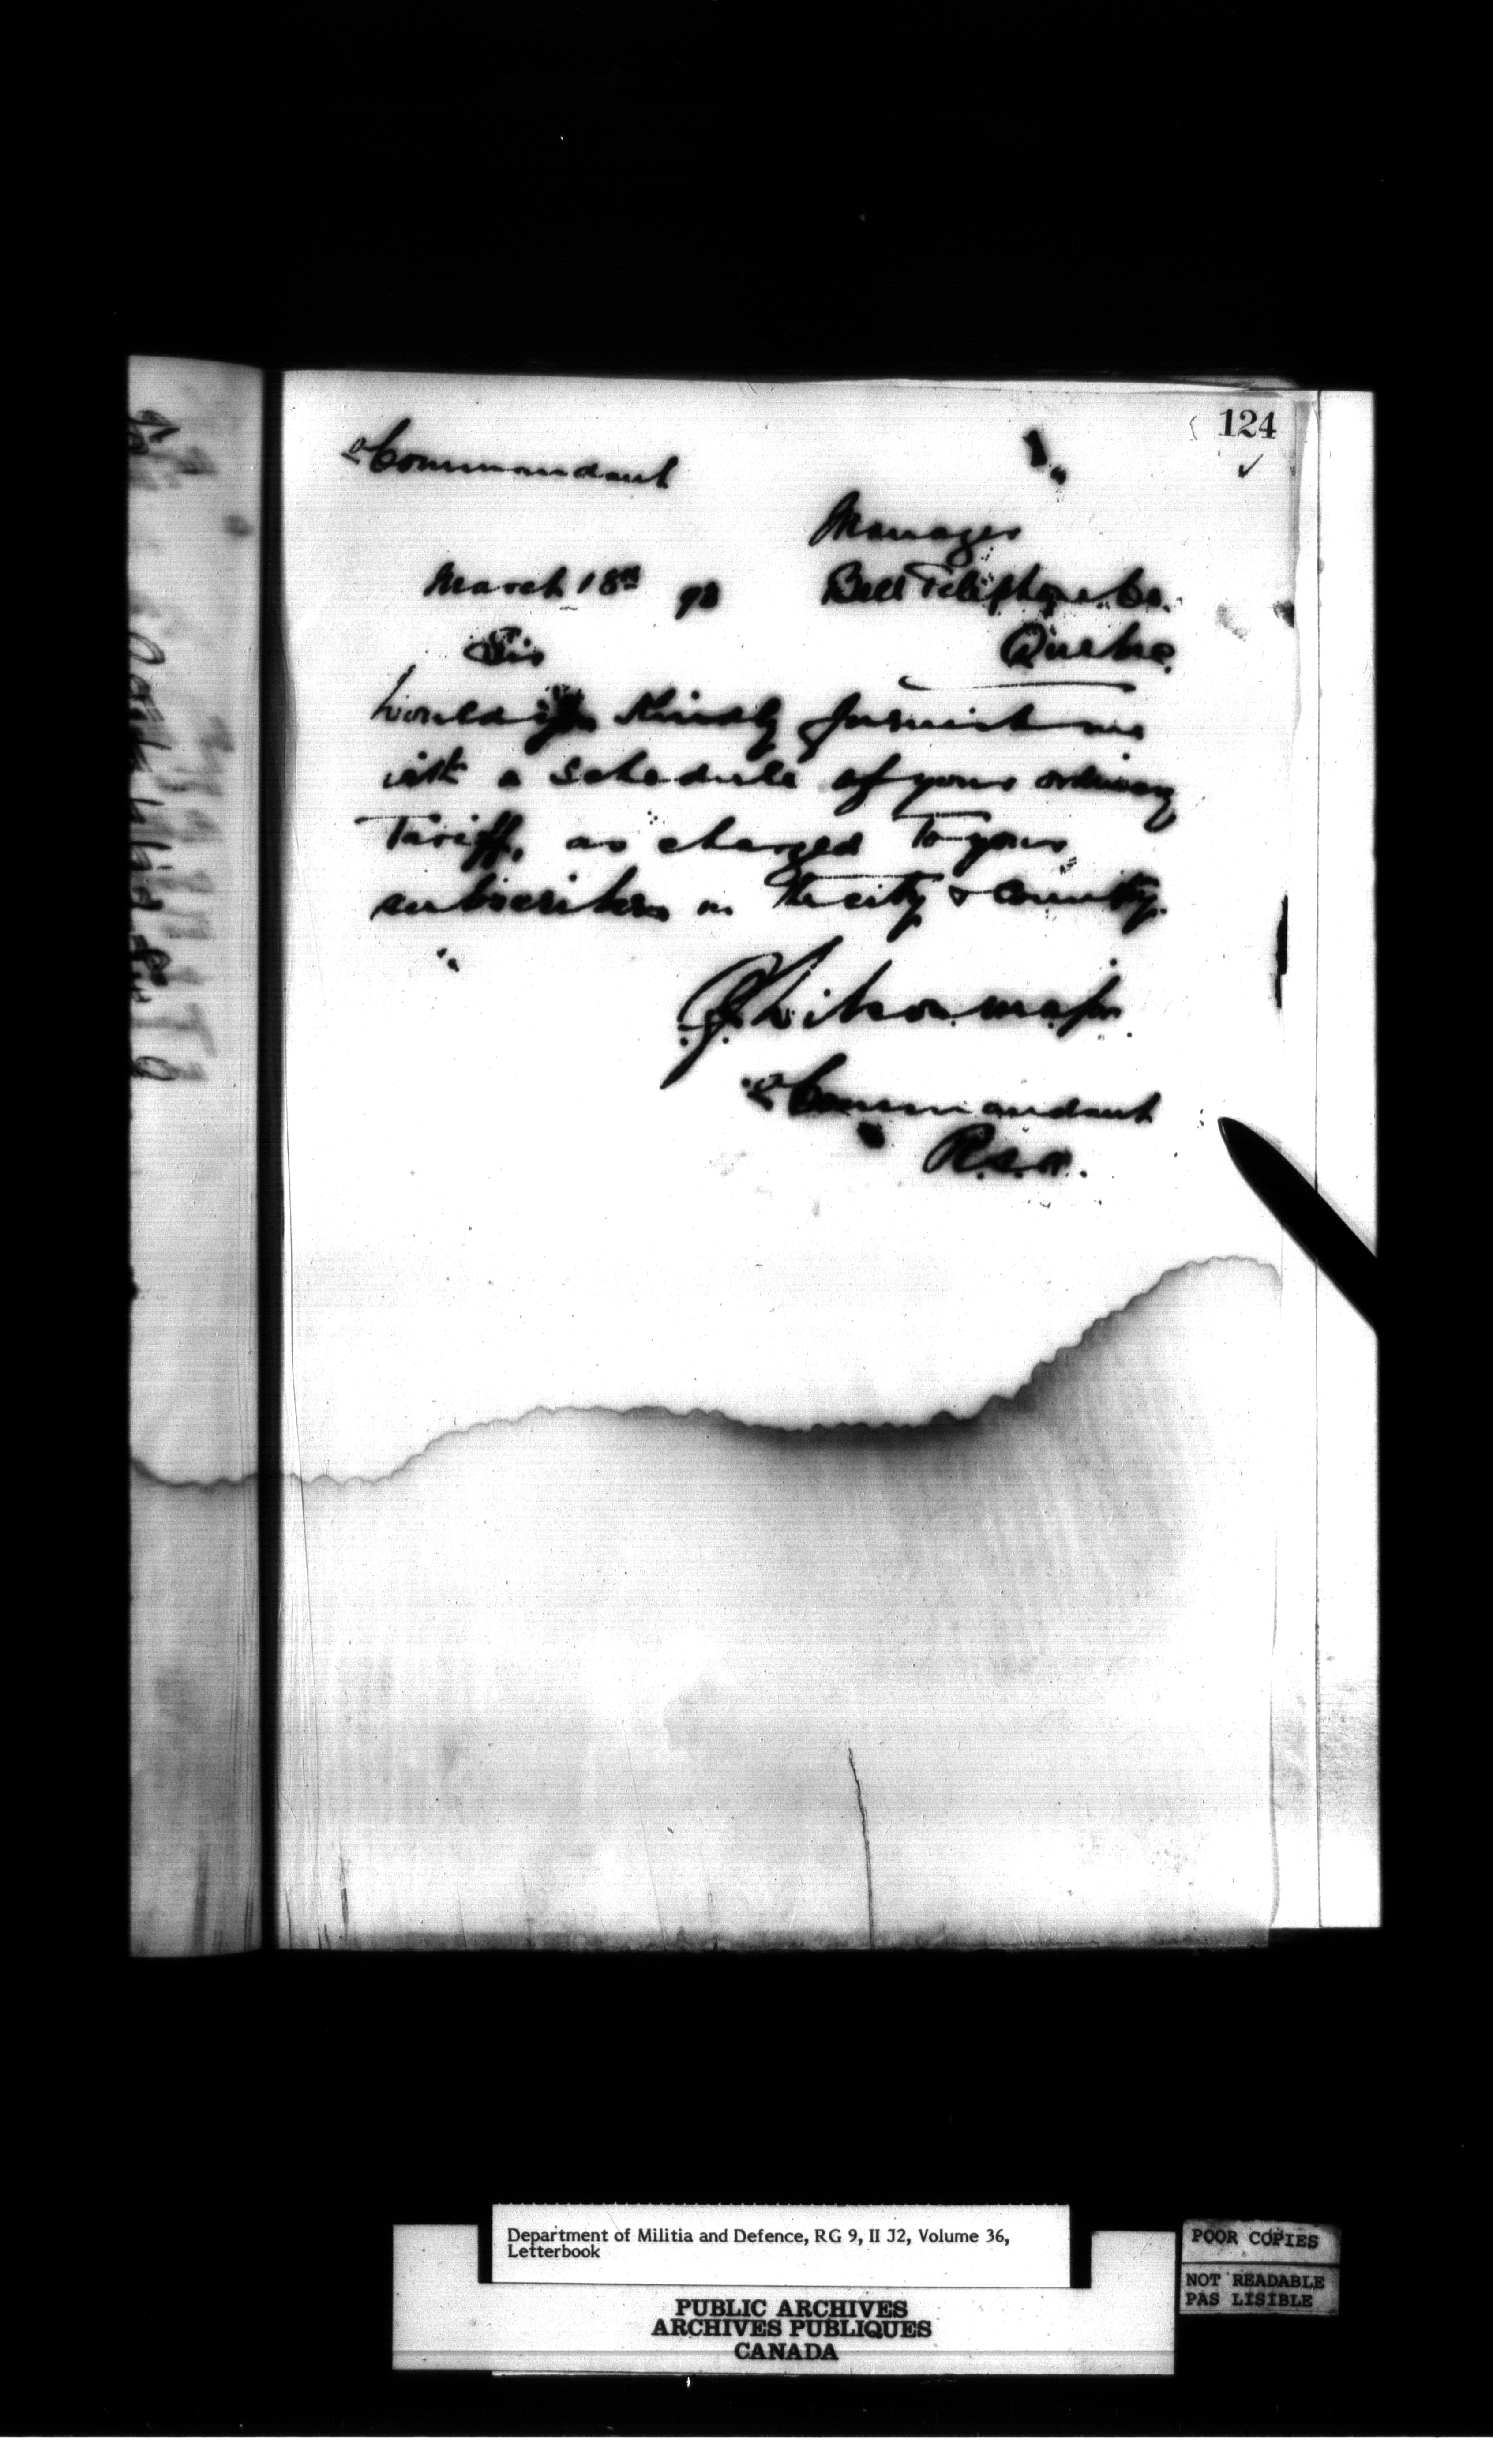 124
Commandant
Manager
March 18th 93
Bell Telephone Co.
Quebec
Sir
Would you kindly furnish me
with a schedule of your ordinary
Tariff, as charged to your
subscribers in the city & county.
Wilson major
Commandant
R.S.A.
Department of Militia and Defence, RG 9, II J2, Volume 36,
Letterbook
PUBLIC ARCHIVES
ARCHIVES PUBLIQUES
CANADA
POOR COPIES
NOT READABLE
PAS LISIBLE